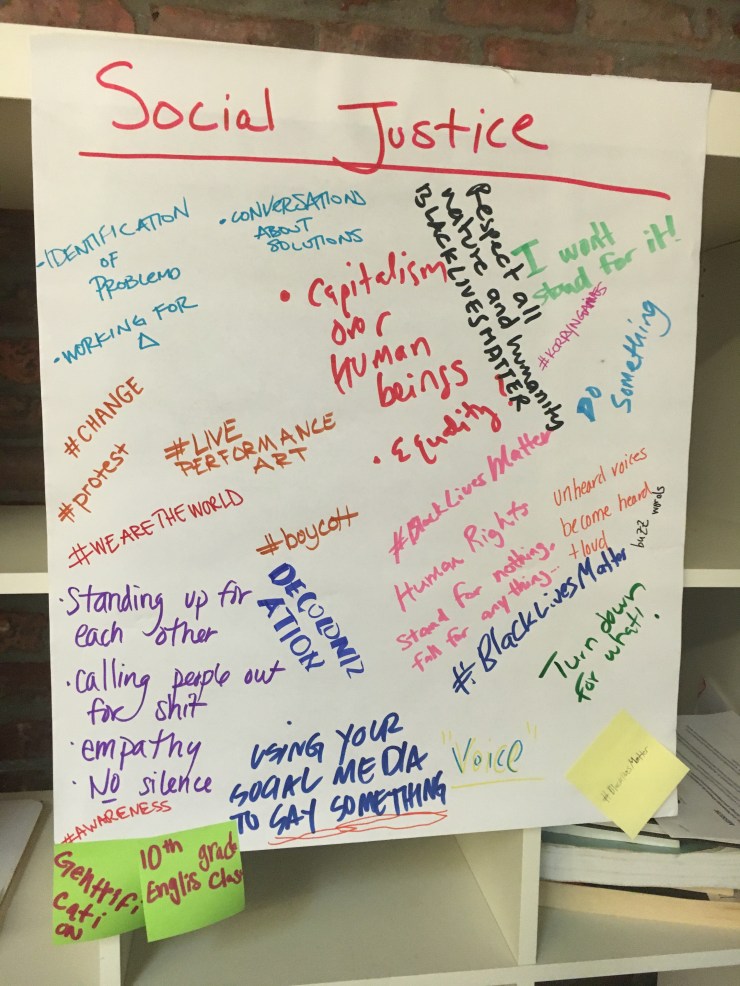 Social Justice
-IDENTIFICATION
OF
PROBLEMS
• CONVERSATIONS
ABOUT
SOLUTIONS
• WORKING FOR
Δ
Respect all
nature and humanity
BLACKLIVESMATTER
I won't
stand for it!
#KORRYNGAINES
DO
Something
• Capitalism
over
Human
beings
• Equality
#CHANGE
#protest
#LIVE
PERFORMANCE
ART
#WEARETHEWORLD
#boycott
#BlackLivesMatter
Human Rights
Stand for nothing.
fall for anything...
unheard voices
become heard
+ loud
buzz words
#BlackLivesMatter
Turn down
for what!
DECOLONIZ
ATION
• Standing up for
each other
• Calling people out
for shit
• empathy
• No silence
#AWARENESS
USING YOUR
SOCIAL MEDIA
TO SAY SOMETHING
"Voice"
#BlackLivesMatter
Gentrifi
cati
on
10th grade
Englis Class